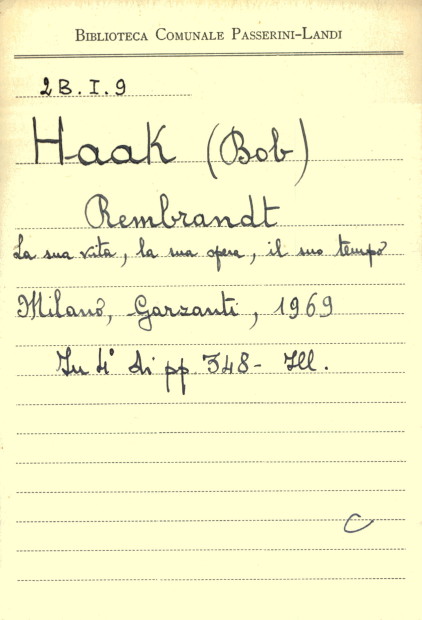 BIBLIOTECA COMUNALE PASSERINI-LANDI
2B.I.9
Haak (Bob)
Rembrandt
La sua vita, la sua opera, il suo tempo
Milano, Garzanti, 1969
In 4° di pp 348 - Ill.
C